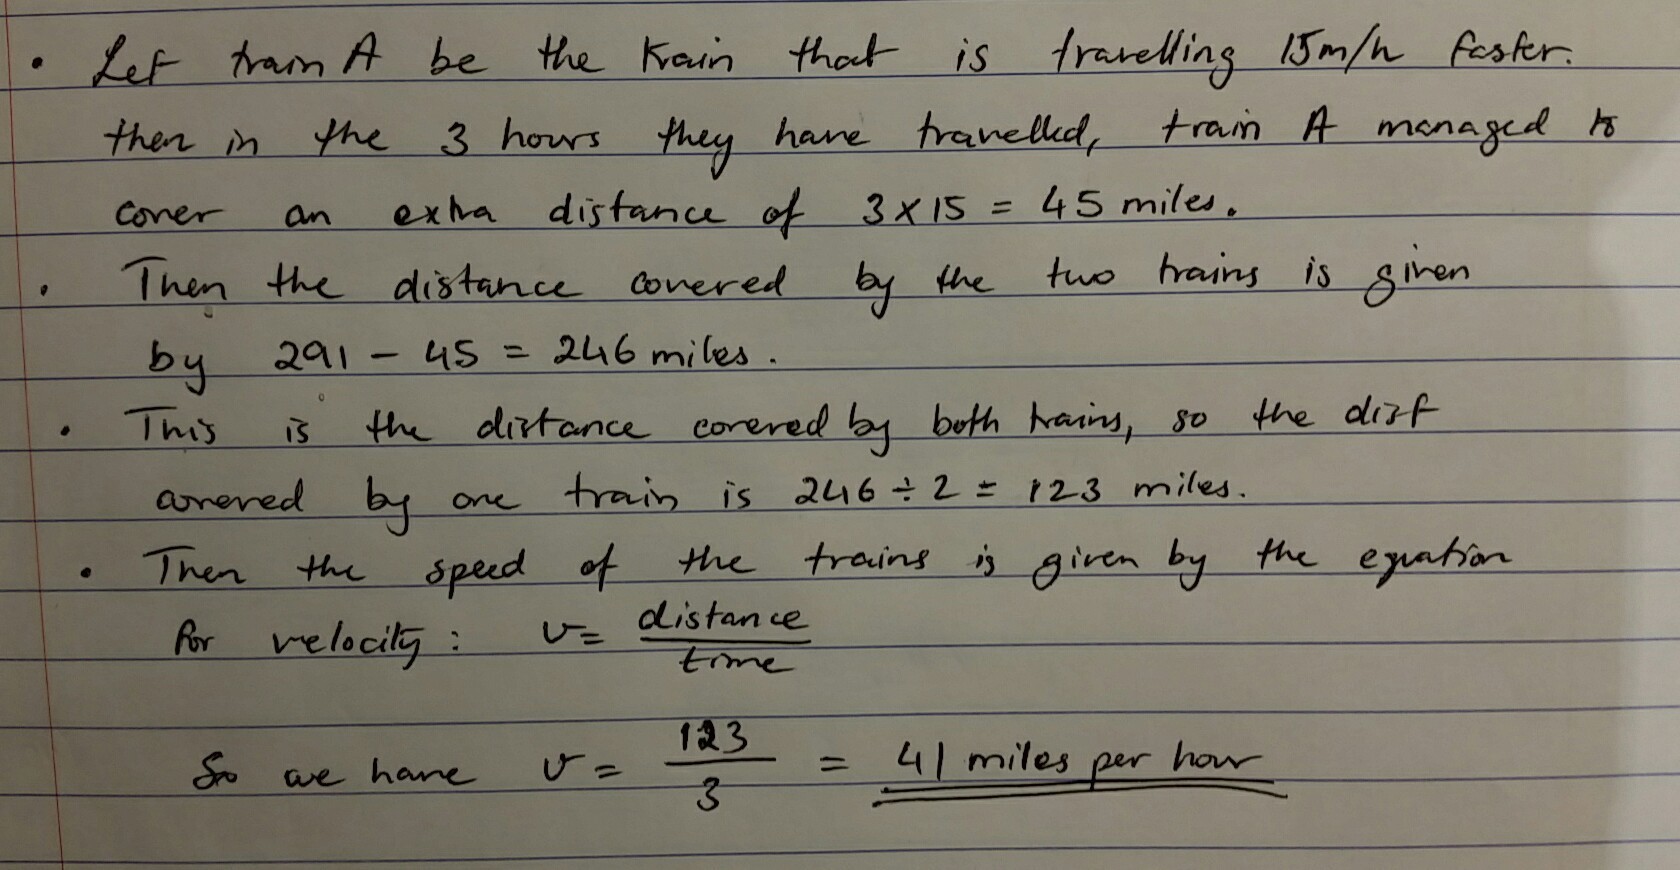 • Let train A be the train that is travelling 15m/h faster.
then in the 3 hours they have travelled, train A managed to
cover an extra distance of 3 x 15 = 45 miles.
• Then the distance covered by the two trains is given
by 291 - 45 = 246 miles.
• This is the distance covered by both trains, so the dist
covered by one train is 246 ÷ 2 = 123 miles.
• Then the speed of the trains is given by the equation
for velocity: v = distance
time
So we have v = 123 = 41 miles per hour
3